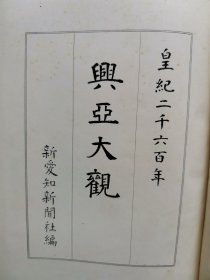 皇紀二千六百年
興亞大觀
新愛知新聞社編